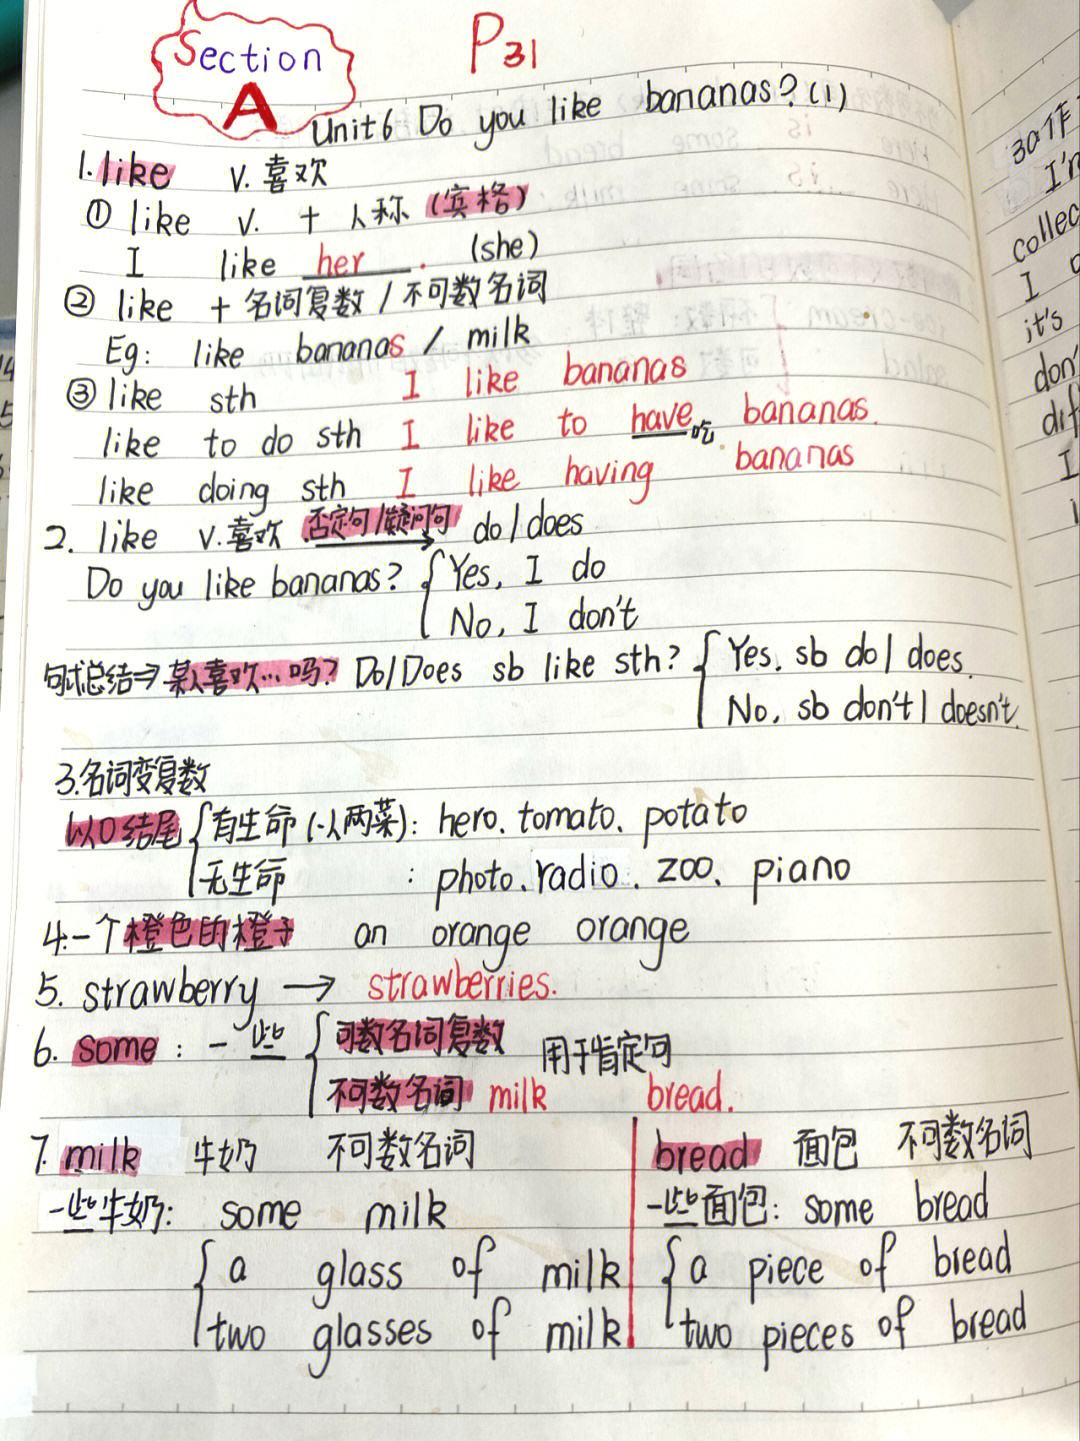 Section
A
P31
Unit6 Do you like bananas?(1)
1.like v.喜欢
① like v. + 人称(宾格)
I like her. (she)
② like + 名词复数/不可数名词
Eg: like bananas / milk
③ like sth I like bananas
like to do sth I like to have吃 bananas.
like doing sth I like having bananas
2. like v.喜欢 否定句/疑问句 do/does
Do you like bananas? { Yes, I do
No, I don't
句式总结⇒某人喜欢…吗? Do/Does sb like sth? { Yes. sb do/does.
No, sb don't/doesn't.
3.名词变复数
以O结尾 { 有生命(一人两菜): hero. tomato. potato
无生命 : photo. radio. zoo. piano
4.一个橙色的橙子 an orange orange
5. strawberry → strawberries.
6. some : 一些 { 可数名词复数 用于肯定句
不可数名词 milk bread.
7. milk 牛奶 不可数名词
一些牛奶: some milk
{ a glass of milk
two glasses of milk
bread 面包 不可数名词
一些面包: some bread
{ a piece of bread
two pieces of bread
30作
collec
I
it's
don'
dif
I